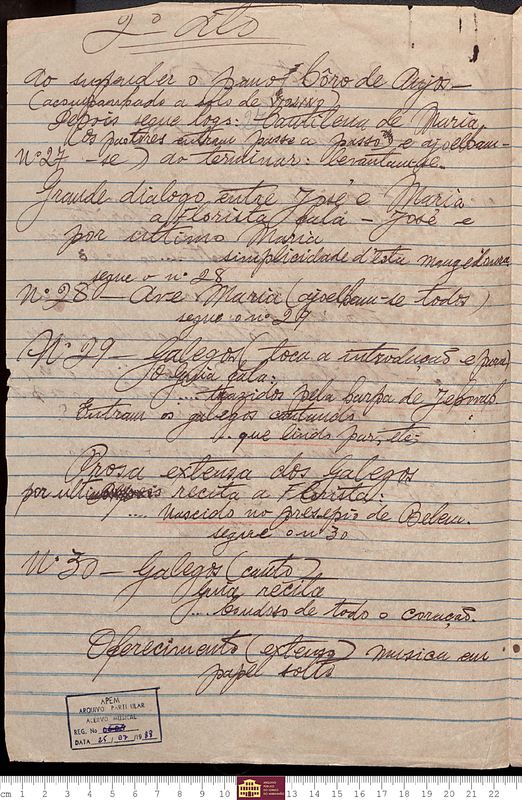 2º Ato
Ao suspender o pano Côro de Anjos -
(acompanhado a solo de
Depois segue logo: Cantilena de Maria
(Os pastores entram passo a passo e ajoelham-
Nº 27 -se) ao terminar: levantam-se.
Grande dialogo entre José e Maria
a Florista fala - José e
por ultimo Maria
simplicidade d'esta mangedoura
segue o nº 28
Nº 28 - Ave Maria (ajoelham-se todos)
segue o nº 29
Nº 29 - Galegos (toca a introdução e para)
Jó Guia fala:
.... trazidos pela barpa de
Entram os galegos cantando
... que lindo par, etc;
Prosa extensa dos galegos
por ultimo recita a Florista:
.... Nascido no presepio de Belem.
segue o nº 30
Nº 30 - Galegos (canto)
Guia recita
... de todo o coração.
Oferecimento (extenso) musica em
papel solto
APEM
ARQUIVO PARTICULAR
ACERVO MUSICAL
REG. No
DATA 25 / 07 / 1988
cm 1 2 3 4 5 6 7 8 9 10 13 14 15 16 17 18 19 20 21 22